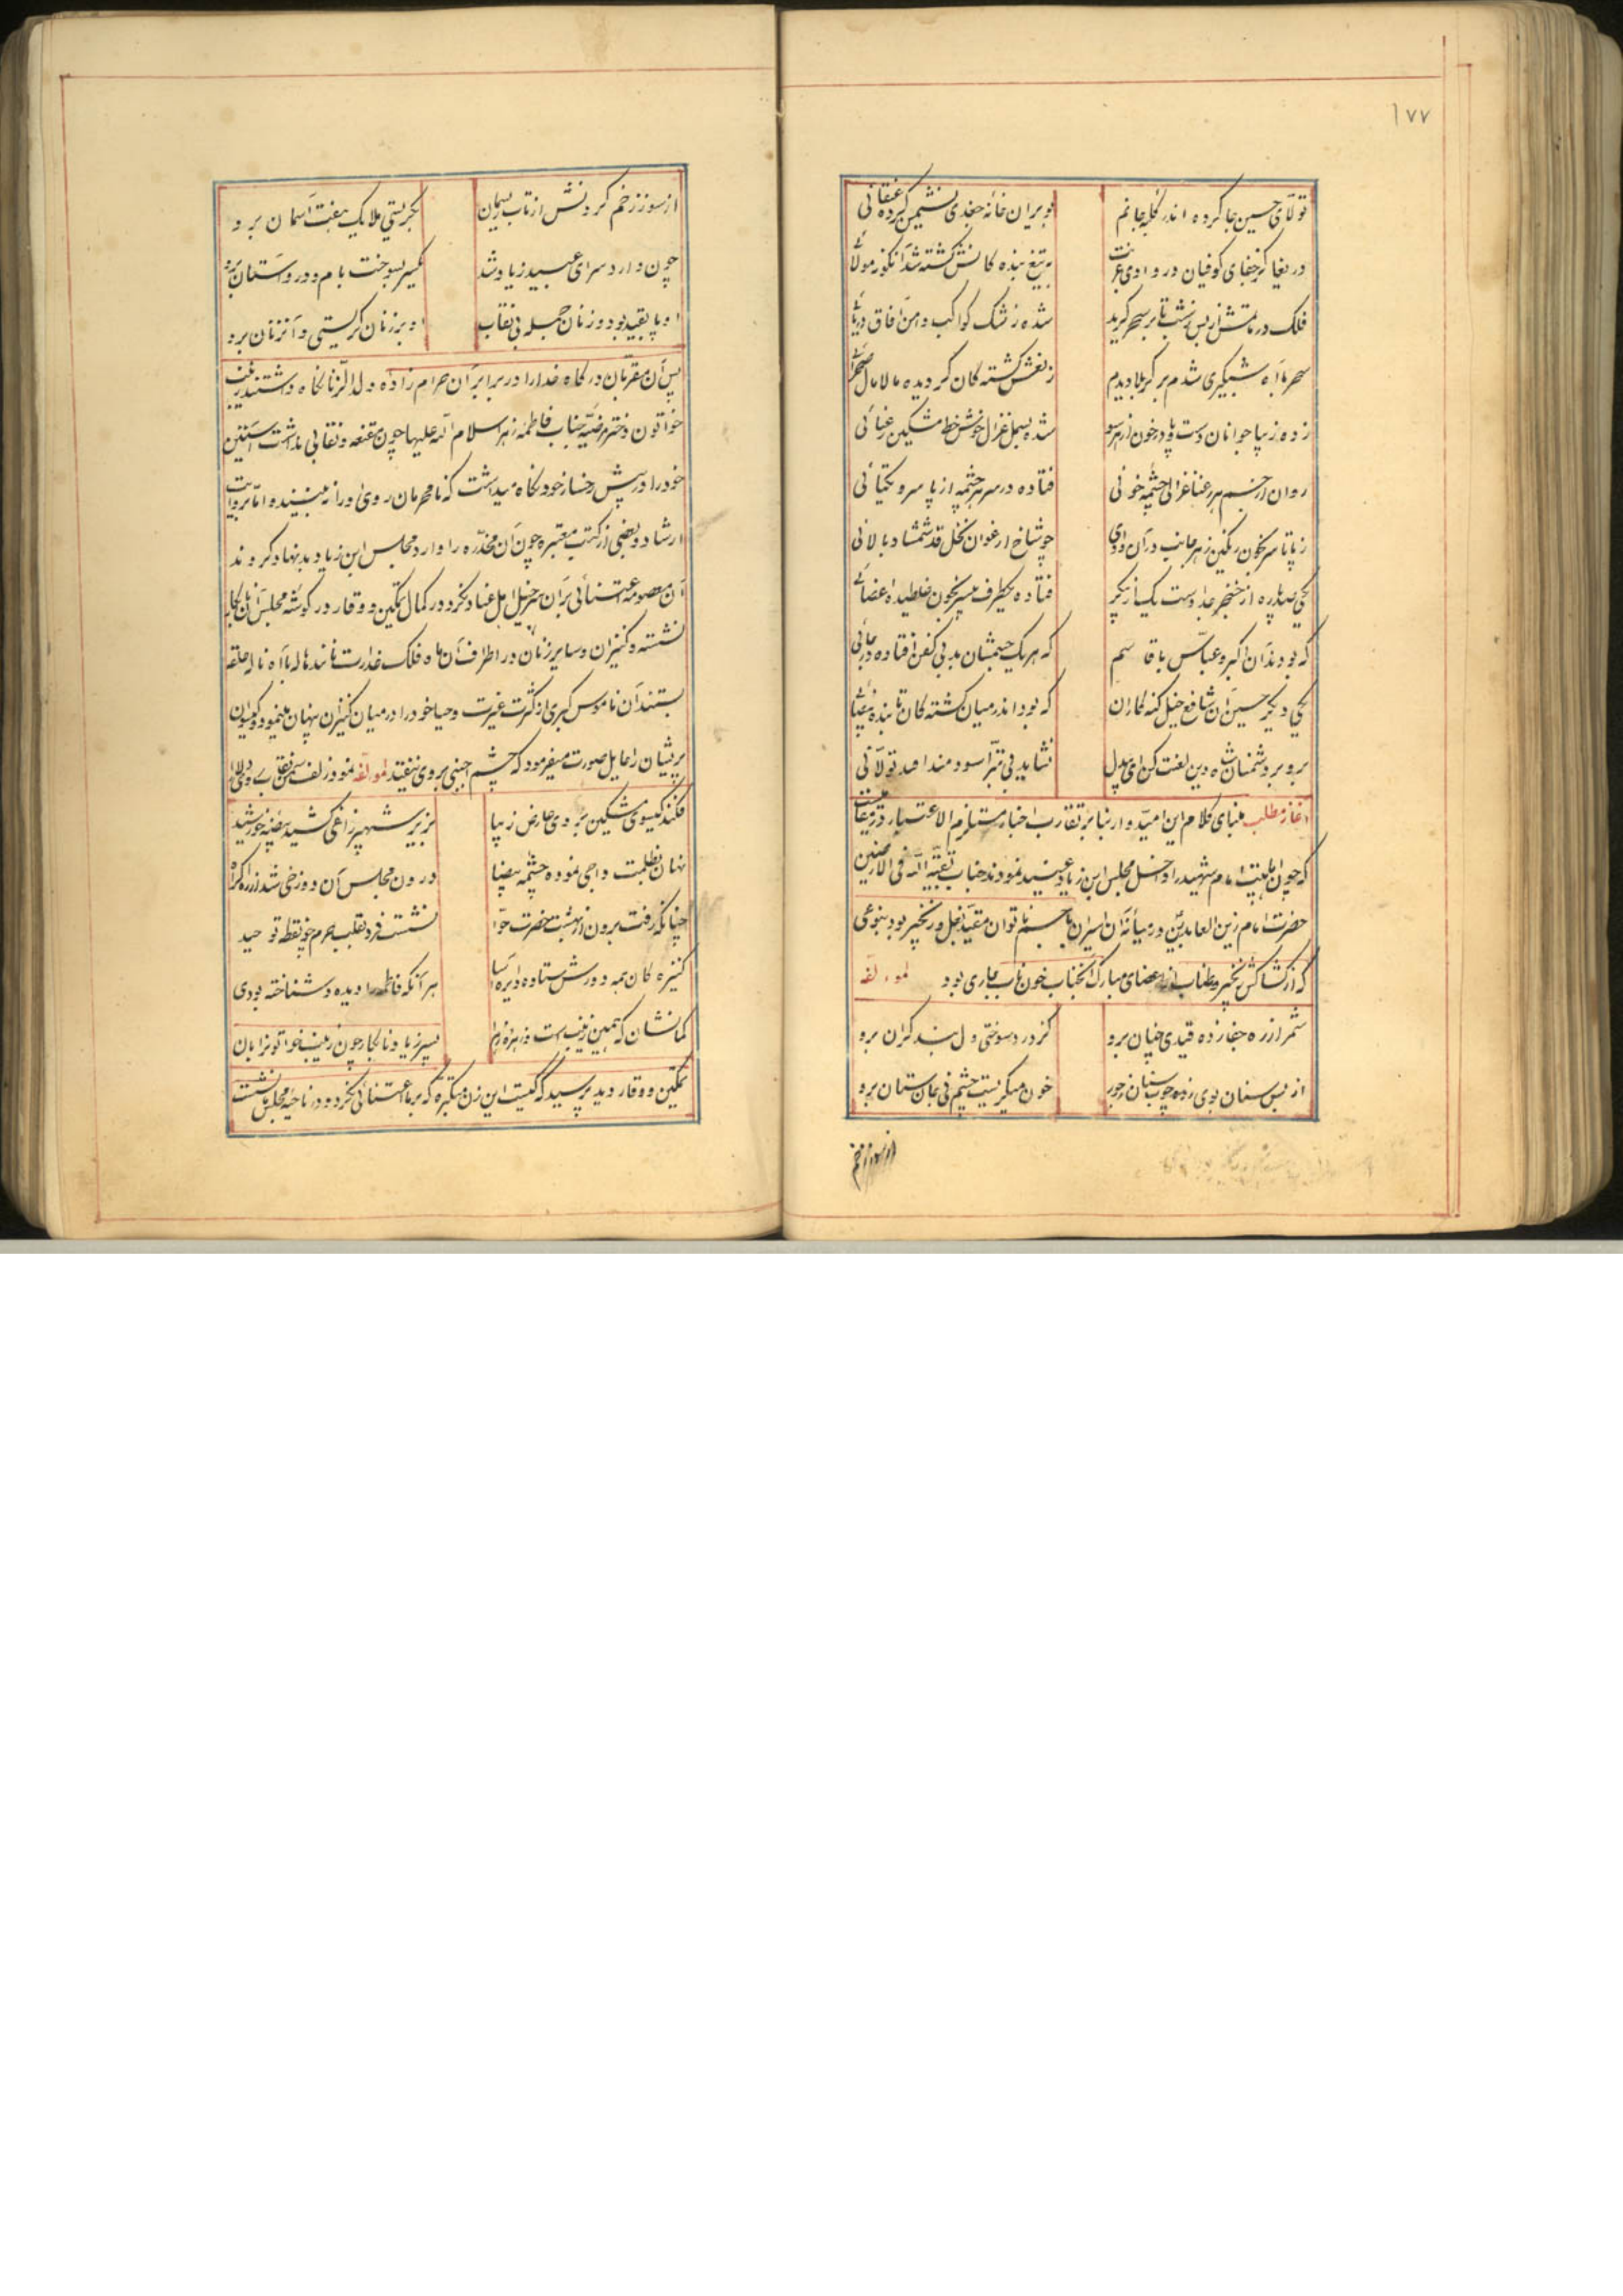 ١٧٧
تولّای حسین جا کرده اندر کلبه جانم بویران خانه جغدی نشیمن کرده عنقائی
دریغا کز جفای کوفیان در وادی غربت به تیغ بنده کانش کشته شد آنکونه مولائی
فلک در ماتمش از بس نشب تا بر سحر گرید شده ز اشک کواکب دامن آفاق دریائی
سحر با آه شبگیری شدم بر کربلا دیدم ز نعش کشته کان گردیده مالامال صحرائی
زده زیبا جوانان دست و پا در خون ز هر سو شده بسمل غزال خوش خط مشکین رعنائی
روان از جسم هر رعنا غزالی چشمه خونی فتاده در سر هر چشمه از پا سرو یکتائی
ز پا تا سر بخون رنگین ز هر جانب در آن وادی چو شاخ ارغوان نخل قد شمشاد بالائی
یکی صد پاره از خنجر عداوت یک از دیگر فتاده یکطرف بیسر بخون غلطیده اعضائی
که بودند آن اکبر و عباس با قاسم که هر یک جسمشان بد بی کفن افتاده در جائی
یکی دیگر حسین آن شافع خیل گنه کاران که بود اندر میان کشته کان تابنده بیضائی
برو بر دشمنان شاه دین لعنت کن ای بیدل نشاید بی تبرّا سودمند آمد تولّائی
آغاز مطلب مبنای کلام این امیدوار بنا بر تقارب اخبار مستلزم الاعتبار در
که چون اهلبیت امام شهید را داخل مجلس ابن زیاد عنید نمودند جناب بقیّة اللّه فی الارضین
حضرت امام زین العابدین در میانه آن اسیران با جسم ناتوان مقید بغل و زنجیر بود بنوعی
که از کشاکش زنجیر و طناب از اعضای مبارک آنجناب خون ناب جاری بود لمؤلفه
شمر از ره جفا زده قیدی چنان برو کز درد سوختی دل بند گران برو
از بس سنان بوی زده چوب سنان ز جور خون میگریست چشم نی جان ستان برو
از سوز زخم
از سوز زخم گردنش از تاب ریسمان بگریستی ملایک هفت آسمان برو
چون وارد سرای عبید زیاد شد یکسر بسوخت بام و در و آستان برو
او پا بقید بود و زنان جمله بی نقاب او بر زنان گریستی و آن زنان برو
پس آن مقربان درگاه خدا را در برابر آن حرام زاده ولد الزنا نگاه داشتند زینب
خواتون دختر مرضیّه جناب فاطمه زهرا سلام اللّه علیها چون مقنعه و نقابی نداشت آستین
خود را در پیش رخسار خود نگاه میداشت که نامحرمان روی او را نه بینند و اما بروایت
ارشاد و بعضی از کتب معتبره چون آن مخدّره را وارد مجلس ابن زیاد بد نهاد کردند
آن معصومه اعتنائی بر آن سر خیل اهل عناد نکرد در کمال تمکین و وقار در گوشه مجلس آن نابکار
نشسته و کنیزان و سایر زنان در اطراف آن ماه فلک خدارت مانند هاله با آه ناله حلقه
بستند آن ناموس کبری از کثرت غیرت و حیا خود را در میان کنیزان پنهان مینمود و گیسوان
پریشان را حایل صورت میفرمود که چشم اجنبی بر وی نیفتد لمؤلفه نمود زلف سمن نقاب
فکند گیسوی مشکین بروی عارض زیبا بزیر شهپر زاغی کشید بیضه خورشید
نهان بظلمت داجی نموده چشمه بیضا درون مجلس آن دوزخی شد از ره اکراه
چنانکه رفت برون از بهشت حضرت حوّا نشست فرد بقلب حرم چو نقطه توحید
کنیزه کان همه دورش ستاده دایره آسا هر آنکه فاطمه را دیده و شناخته بودی
گمانشان که همین زینب است و زهره زهرا پسر زیاد نابکار چون زینب خواتون را بآن
تمکین و وقار دید پرسید که کیست این زن متکبّره که بر ما اعتنائی نکرد و در ناحیه مجلس نشست